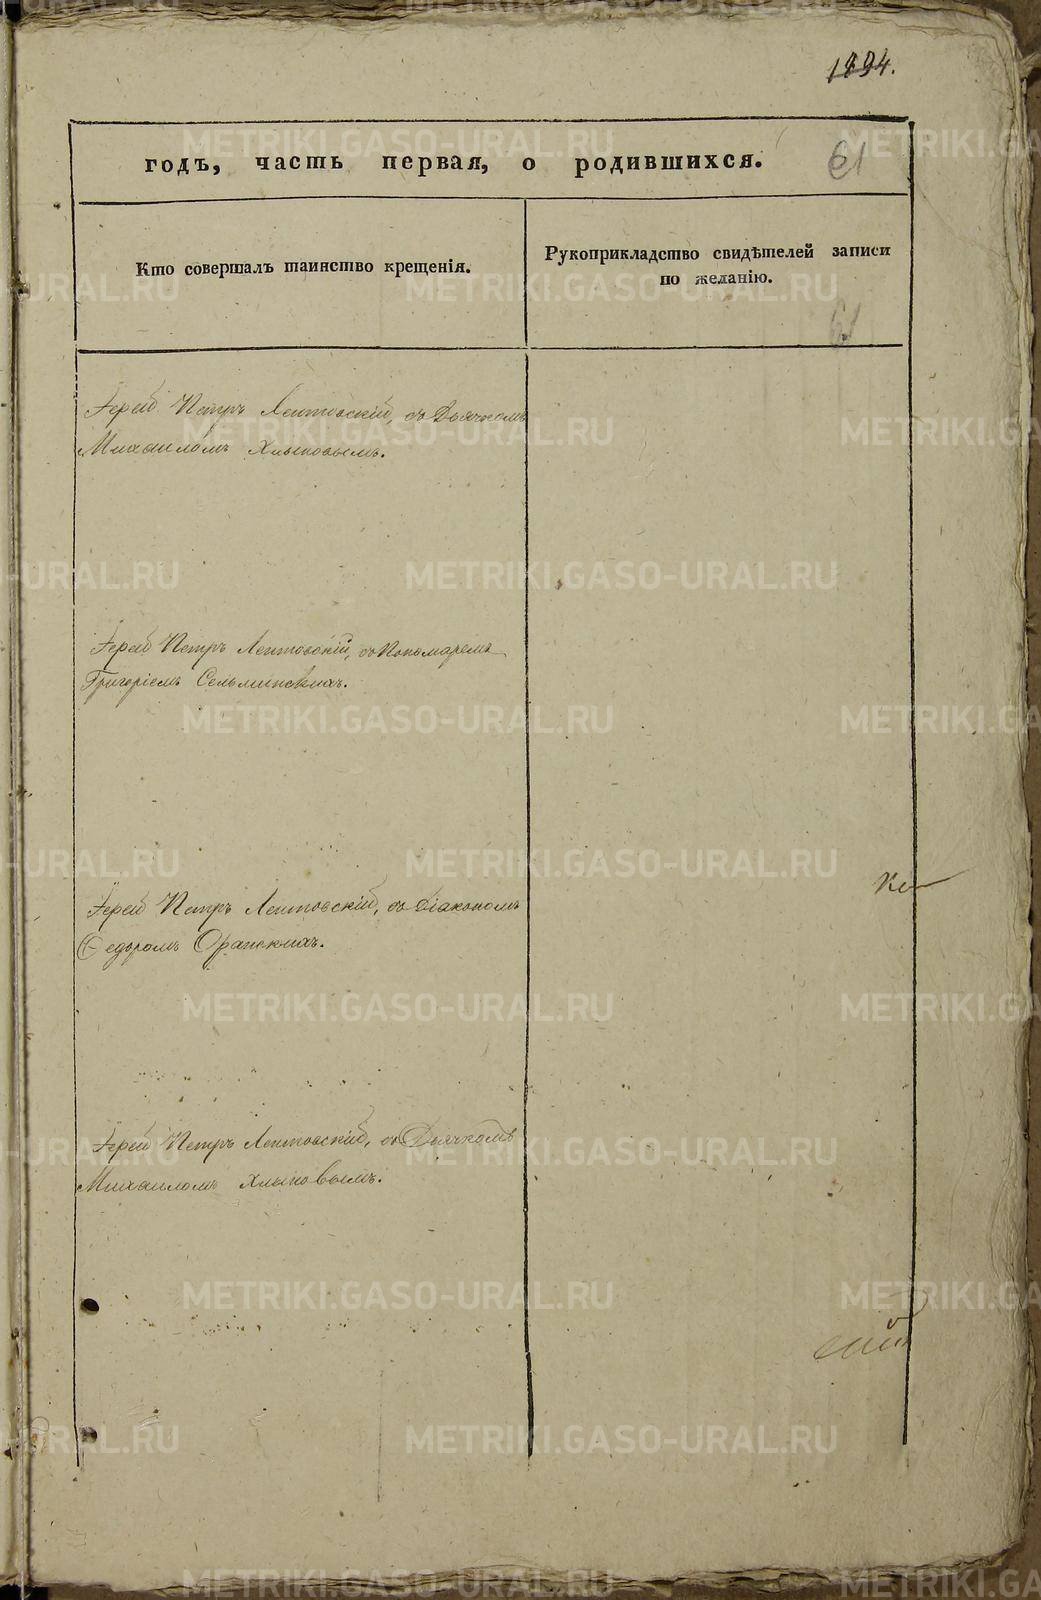 61
годъ, часть первая, о родившихся.
Кто совершалъ таинство крещенія.
Рукоприкладство свидѣтелей записи
по желанію.
61
Іерей Петръ Лептовскій, съ Дьячкомъ
Михаиломъ Хлыновымъ.
Іерей Петръ Лептовскій, съ Пономаремъ
Григоріемъ Сельминскихъ.
Іерей Петръ Лептовскій, съ Діакономъ
Ѳедоромъ
Іерей Петръ Лептовскій, съ Дьячкомъ
Михаиломъ Хлыновымъ.
METRIKI.GASO-URAL.RU